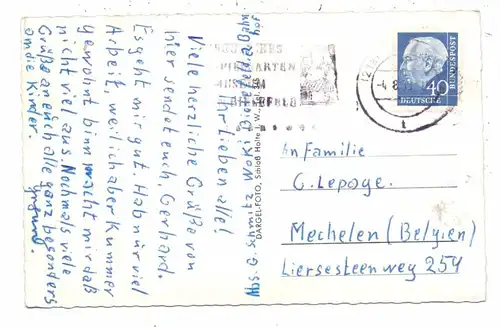 Ihr Lieben alle!
Viele herzliche Grüße von
hier sendet euch, Gerhard.
Es geht mir gut. Hab nur viel
Arbeit, weil ich aber Kummer
gewohnt binn macht mir daß
nicht viel aus. Nochmals viele
Grüße an euch alle ganz besonders
an die Kinder.
Abs. G. Schmitz Woki Bielefeld a Bahn
hof
DARGEL-FOTO, Schloß Holte i. W.
SPIELKARTEN
MUSEUM
BIELEFELD
(21a)
-4.8.
40
DEUTSCHE
BUNDESPOST
An Familie
C. Lepage.
Mechelen (Belgien)
Liersesteenweg 254